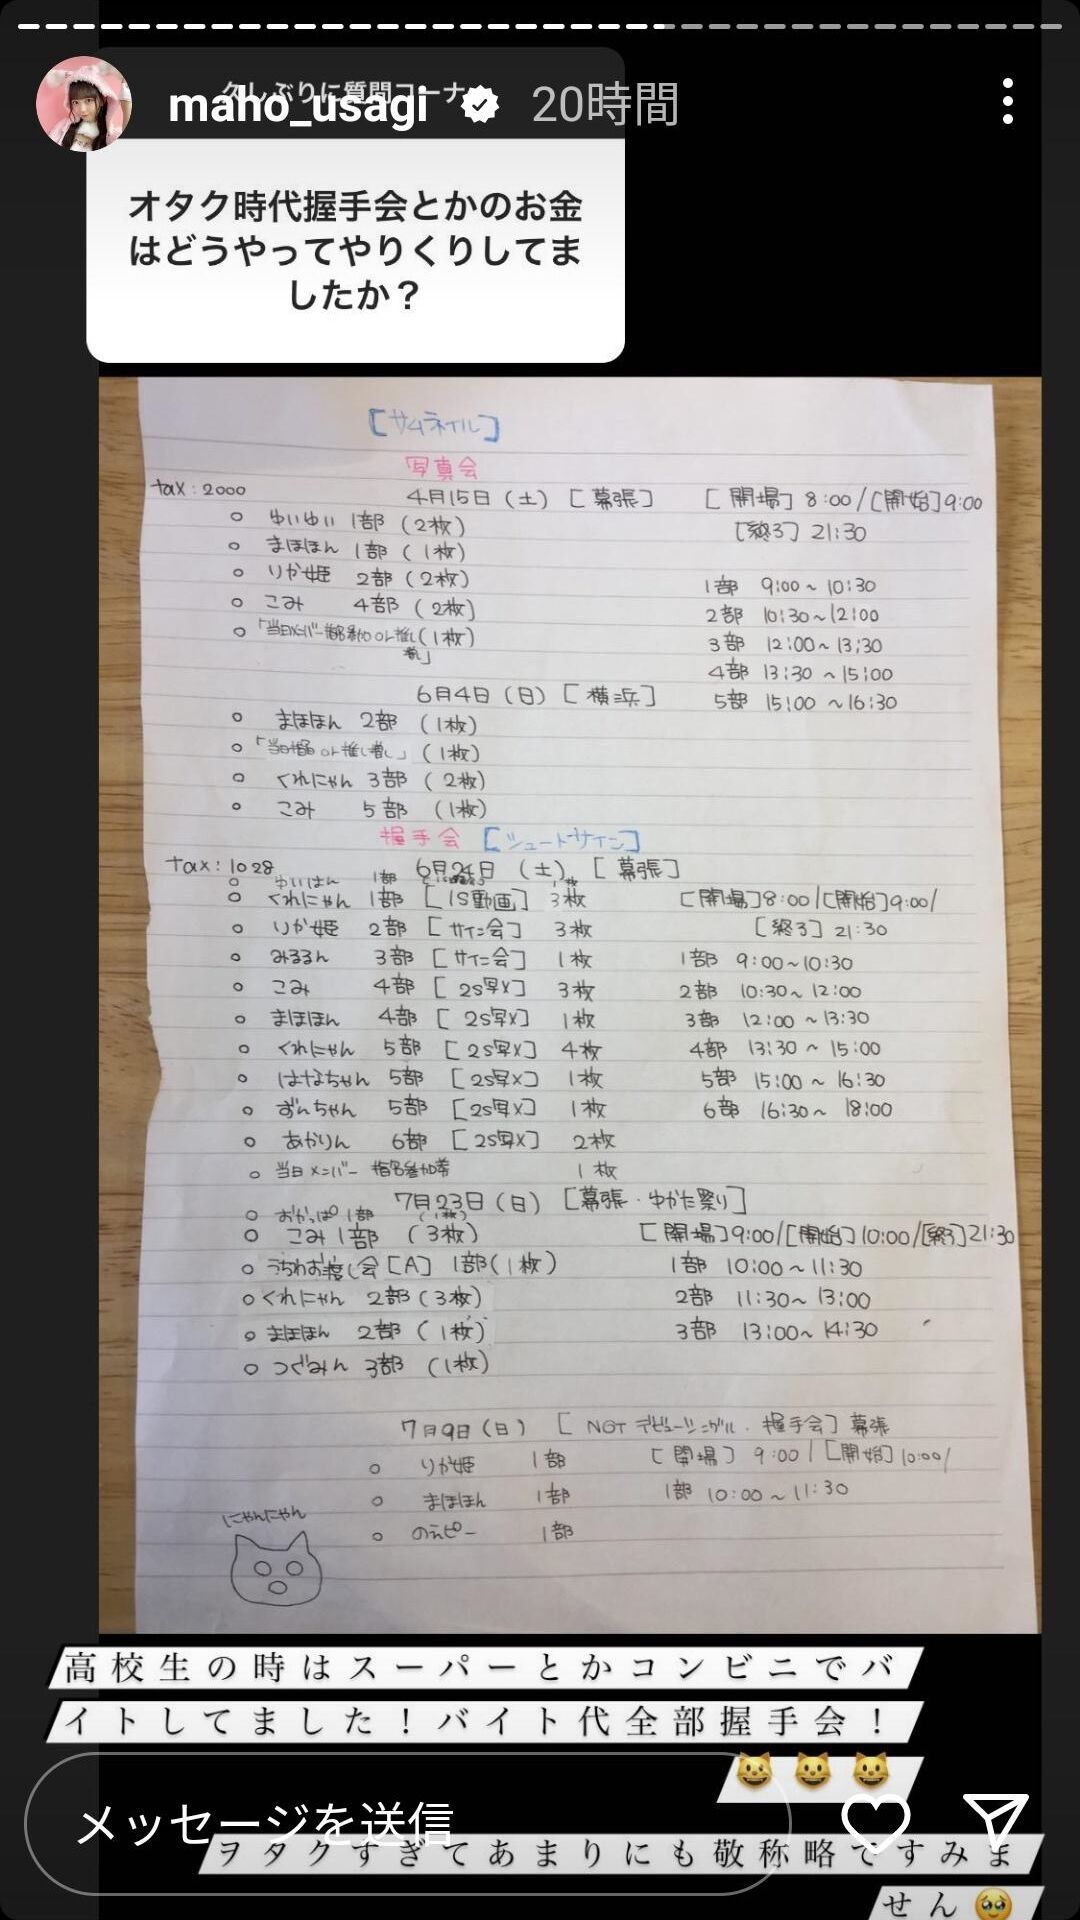 久しぶりに質問コーナー
maho_usagi 20時間
オタク時代握手会とかのお金
はどうやってやりくりしてま
したか？
[サムネイル]
写真会
tax:2000 4月15日(土) [幕張] [開場] 8:00/[開始]9:00
○ ゆいゆい 1部 (2枚) [終了] 21:30
○ まほほん 1部 (1枚)
○ りか姫 2部 (2枚) 1部 9:00~10:30
○ こみ 4部 (2枚) 2部 10:30~12:00
○「当日メンバー指名参加 or 推し増し」(1枚) 3部 12:00~13:30
4部 13:30~15:00
6月4日(日) [横浜] 5部 15:00~16:30
○ まほほん 2部 (1枚)
○「当日指名 or 推し増し」(1枚)
○ くれにゃん 3部 (2枚)
○ こみ 5部 (1枚)
握手会 [シュートサイン]
tax:1028 6月24日(土) [幕張]
○ ゆいはん 1部 1枚
○ くれにゃん 1部 [1S動画] 3枚 [開場]8:00/[開始]9:00/
○ りか姫 2部 [サイン会] 3枚 [終了] 21:30
○ みるるん 3部 [サイン会] 1枚 1部 9:00~10:30
○ こみ 4部 [2S写メ] 3枚 2部 10:30~12:00
○ まほほん 4部 [2S写メ] 1枚 3部 12:00~13:30
○ くれにゃん 5部 [2S写メ] 4枚 4部 13:30~15:00
○ はなちゃん 5部 [2S写メ] 1枚 5部 15:00~16:30
○ ずんちゃん 5部 [2S写メ] 1枚 6部 16:30~18:00
○ あかりん 6部 [2S写メ] 2枚
○ 当日メンバー 指名参加券 1枚
7月23日(日) [幕張・ゆかた祭り]
○ おかっぱ 1部 (1枚)
○ こみ 1部 (3枚) [開場]9:00/[開始]10:00/[終了]21:30
○ うちわお渡し会[A] 1部(1枚) 1部 10:00~11:30
○ くれにゃん 2部(3枚) 2部 11:30~13:00
○ まほほん 2部 (1枚) 3部 13:00~14:30
○ つぐみん 3部 (1枚)
7月9日(日) [NGT デビューシングル・握手会] 幕張
○ りか姫 1部 [開場] 9:00/[開始]10:00/
○ まほほん 1部 1部 10:00~11:30
○ のえピー 1部
にゃんにゃん
高校生の時はスーパーとかコンビニでバ
イトしてました！バイト代全部握手会！
😺 😺 😺
メッセージを送信
ヲタクすぎてあまりにも敬称略ですみま
せん🥹